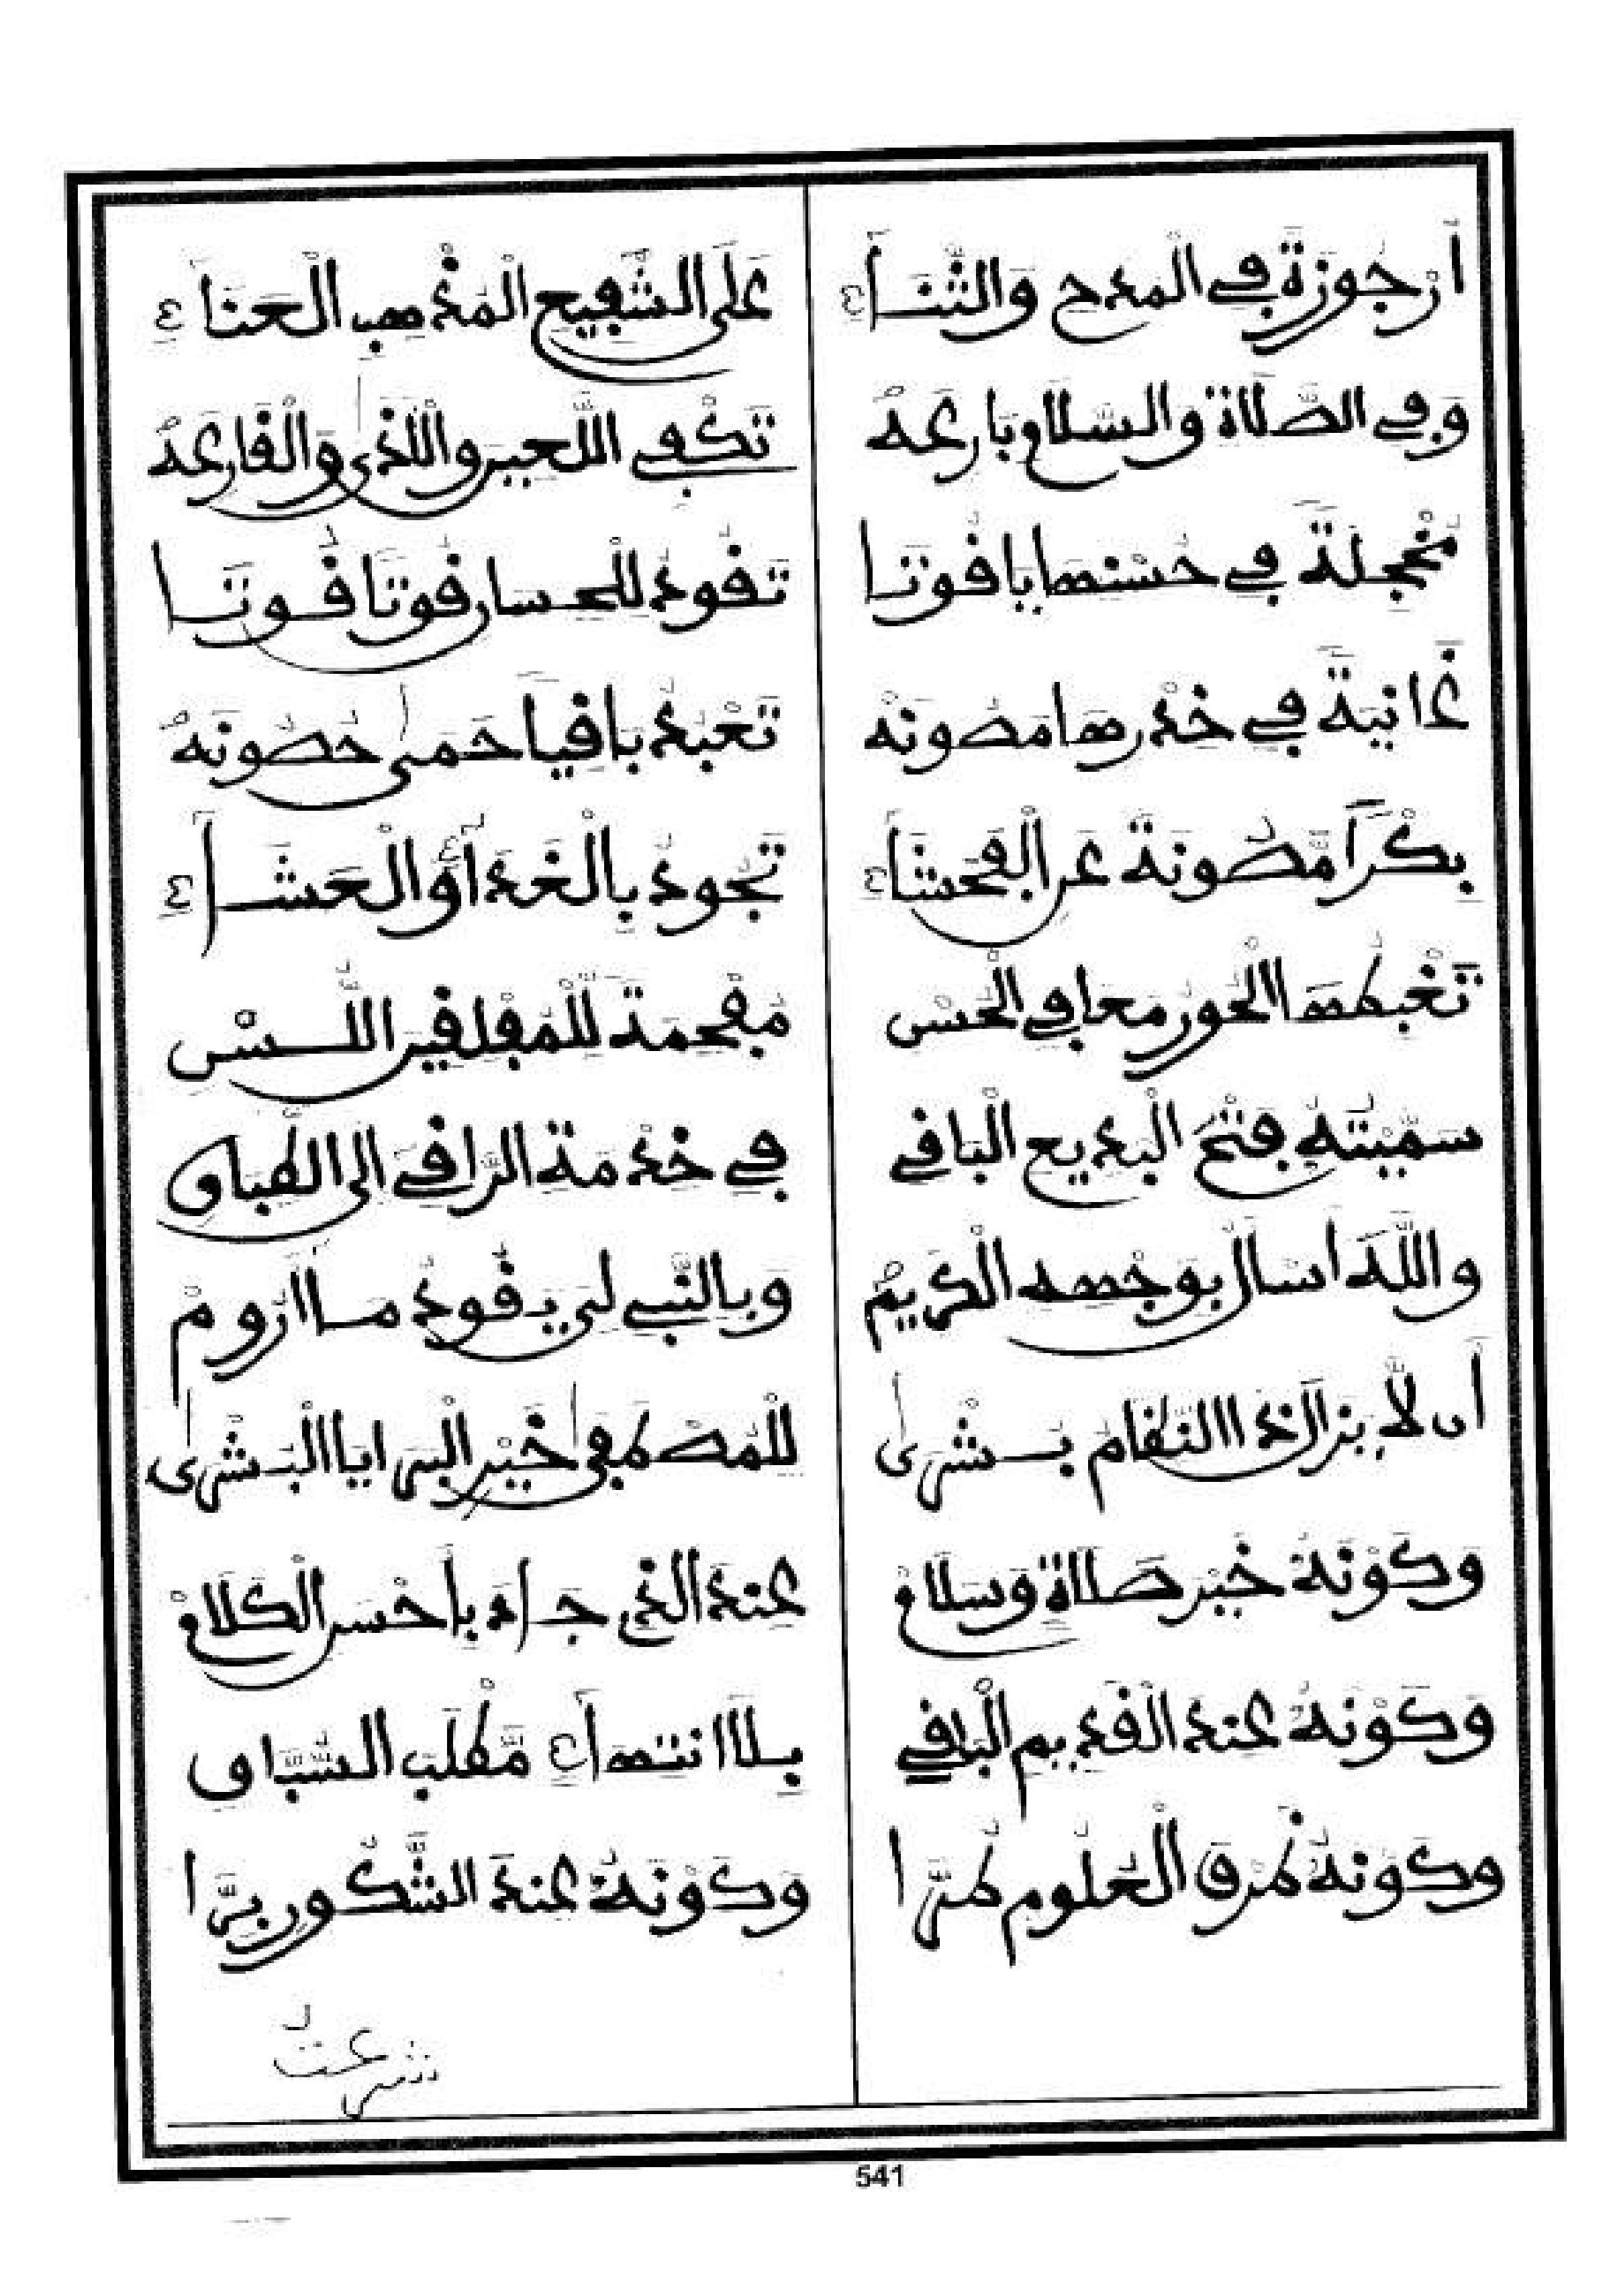 أُرْجُوزَةٌ فِى الْمَدْحِ وَالثَّنَاءِ عَلَى الشَّفِيعِ الْمُذْهِبِ الْعَنَاءِ
وَفِى الصَّلَاةِ وَالسَّلَامِ بَارِعَهْ تَكْفِى اللَّعِينَ وَالْأَذَى وَالْقَارِعَهْ
مُخْجِلَةٌ فِى حُسْنِهَا يَاقُوتَا تَقُودُ لِلْحِسَانِ قُوتًا قُوتَا
غَانِيَةٌ فِى خِدْرِهَا مَصُونَهْ تَعْبُدُ بَاقِيًا حَمَى حُصُونَهْ
بِكْرًا مَّصُونَةً عَنِ الْفَحْشَاءِ تَجُودُ بِالْغَدَاءِ أَوِ الْعَشَاءِ
تَغْبِطُهَا الْحُورُ مَعًا فِى الْحُسْنِ مُفْحِمَةٌ لِّلْمُفْلِقِينَ اللُّسْنِ
سَمَّيْتُهُ فَتْحَ الْبَدِيعِ الْبَاقِى فِى خِدْمَةِ الرَّاقِى إِلَى الطِّبَاقِ
وَاللَّهَ أَسْأَلُ بِوَجْهِهِ الْكَرِيمْ وَبِالنَّبِى لِى يَقُودُ مَا أَرُومْ
أَن لَّا يَزَالَ ذَا النِّظَامُ بُشْرَى لِلْمُصْطَفَى خَيْرِ الْبَرَايَا الْبُشْرَى
وَكَوْنَهُ خَيْرَ صَلَاةٍ وَسَلَامْ عِنْدَ الذِى جَاءَ بِأَحْسَنِ الْكَلَامْ
وَكَوْنَهُ عِنْدَ الْقَدِيمِ الْبَاقِى بِلَا انتِهَاءٍ مَّطْلَبَ السُّبَّاقِ
وَكَوْنَهُ طُرْقَ الْعُلُومِ طُرَّا وَكَوْنَهُ عِنْدَ الشَّكُورِ بِرَّا
541